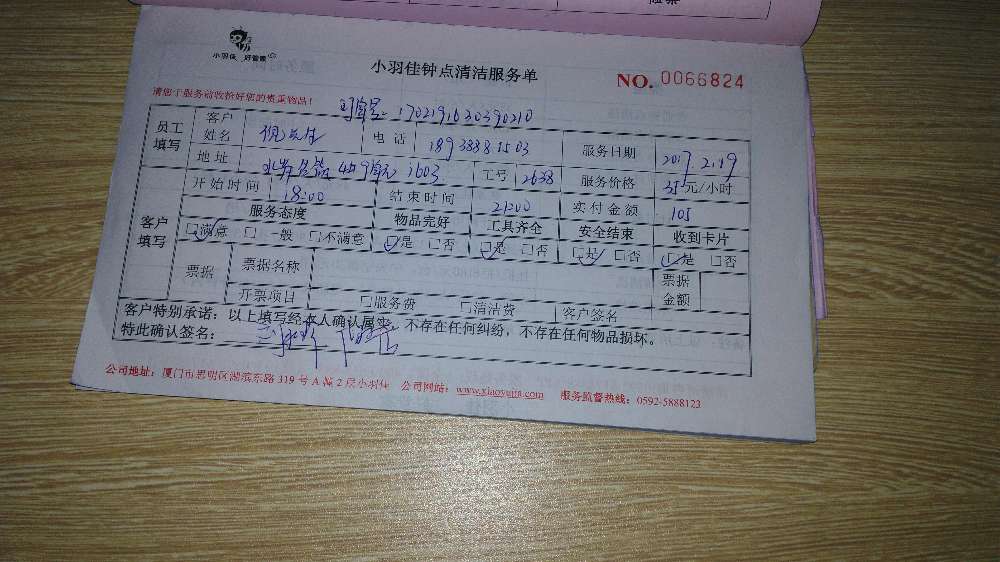 小羽佳 好管家
小羽佳钟点清洁服务单
NO. 0066824
请您于服务前收拾好您的贵重物品!
1702191630390210
员工填写 客户姓名 倪先生 电话 18938381503 服务日期 2017 2.19
地址 1603 工号 2638 服务价格 35元/小时
客户填写 开始时间 18:00 结束时间 21:00 实付金额 105
服务态度 物品完好 工具齐全 安全结束 收到卡片
□满意 □一般 □不满意 □是 □否 □是 □否 □是 □否 □是 □否
票据 票据名称 票据金额
开票项目 □服务费 □清洁费 客户签名
客户特别承诺:以上填写经本人确认属实,不存在任何纠纷,不存在任何物品损坏。
特此确认签名:
公司地址:厦门市思明区湖滨东路319号A幢2层小羽佳 公司网站:www.xiaoyujia.com 服务监督热线:0592-5888123